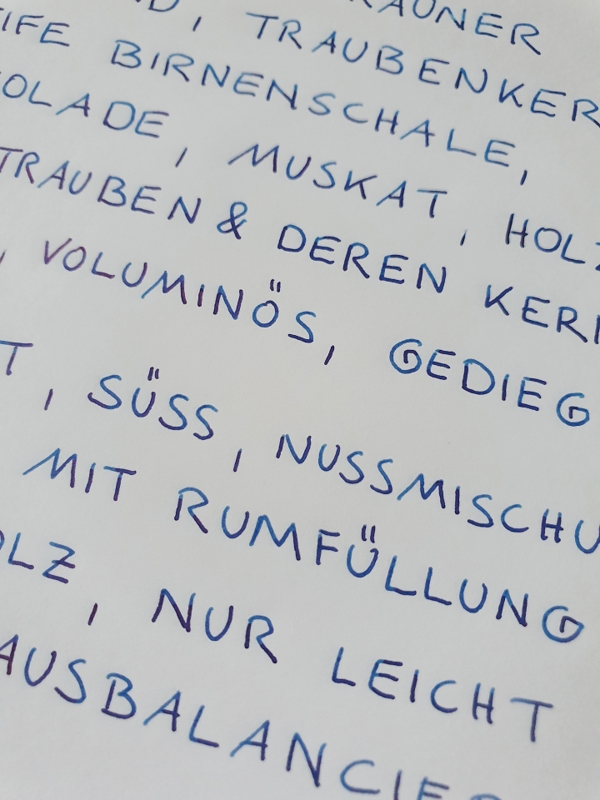 RAUNER
D, TRAUBENKER
IFE BIRNENSCHALE,
OLADE, MUSKAT, HOLZ
TRAUBEN & DEREN KER
, VOLUMINÖS, GEDIEG
T, SÜSS, NUSSMISCHU
MIT RUMFÜLLUNG
OLZ, NUR LEICHT
AUSBALANCIER